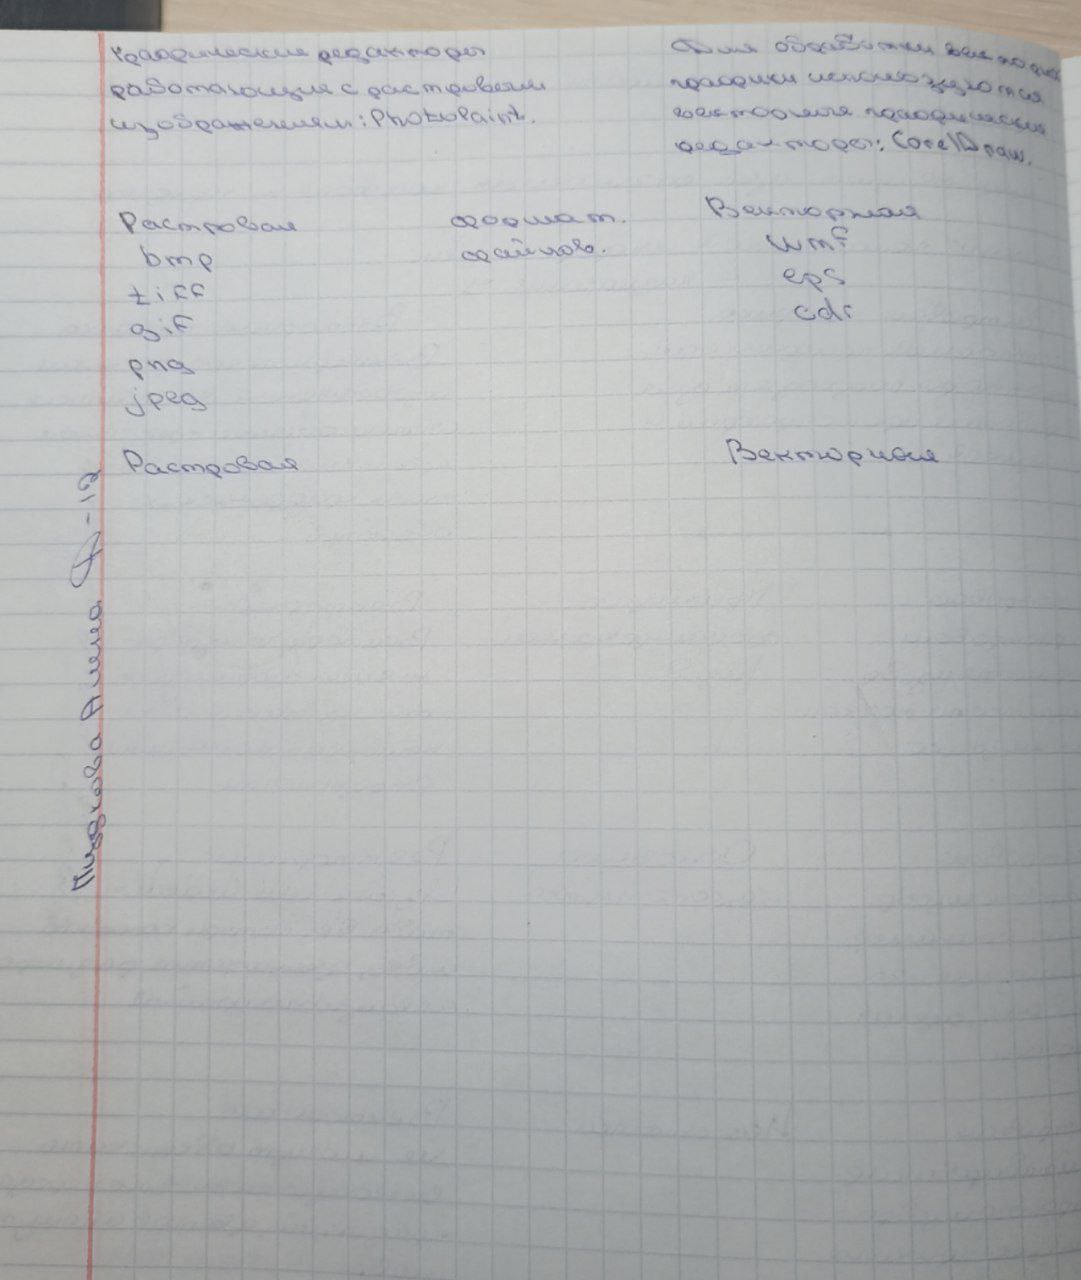 Графические редакторы
работающие с растровыми
изображениями: PhotoPaint.
Для обработки векторной
графики используются
векторные графические
редакторы: CorelDraw.
Растровая формат. Векторная
bmp файлов. wmf
tiff eps
gif cdr
png
jpeg
Растровая Векторная
Алина Ф-12